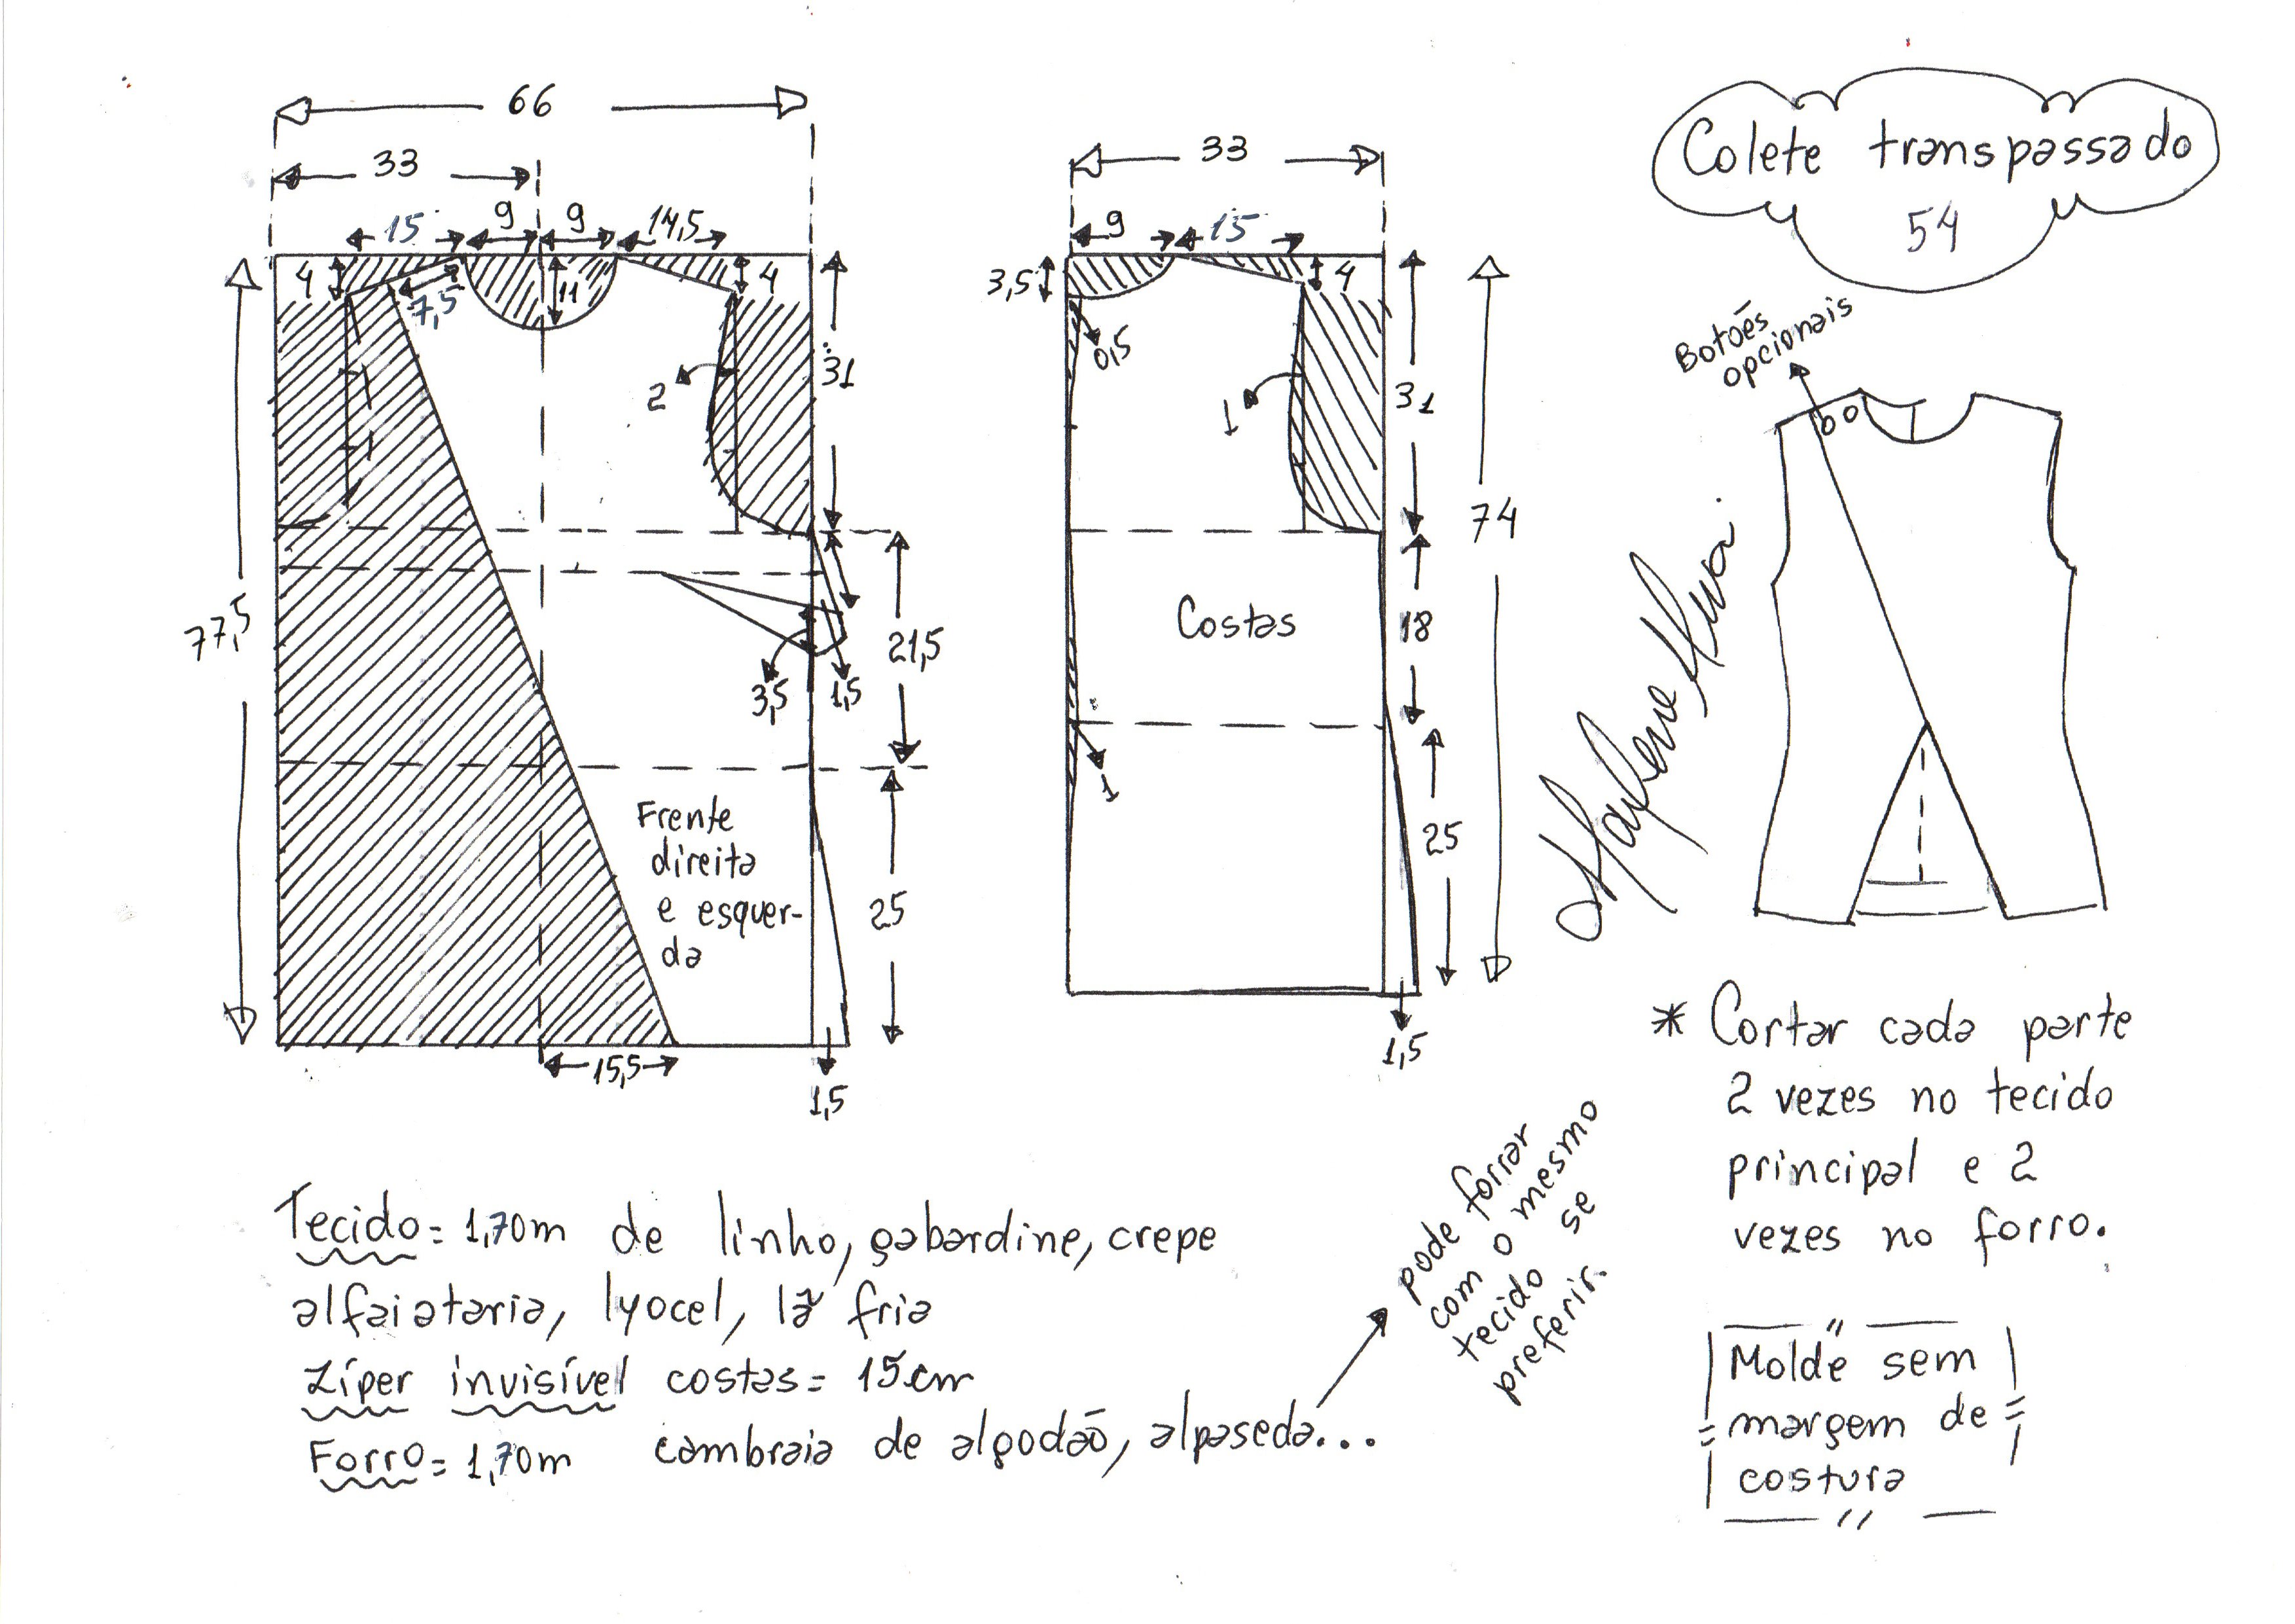 66
33
15
9
9
14,5
4
7,5
11
4
31
2
77,5
21,5
3,5
1,5
Frente
direita
e esquer-
da
25
15,5
1,5
33
9
15
3,5
4
0,5
1
31
74
Costas
18
1
25
1,5
Colete transpassado
54
Botoēs
opcionais
* Cortar cada parte
2 vezes no tecido
principal e 2
vezes no forro.
Molde sem
margem de
costura
Tecido = 1,70m de linho, gabardine, crepe
alfaiataria, lyocel, lã fria
Zíper invisível costas = 15cm
Forro = 1,70m cambraia de algodão, alpaseda...
pode forrar
com o mesmo
tecido se
preferir.